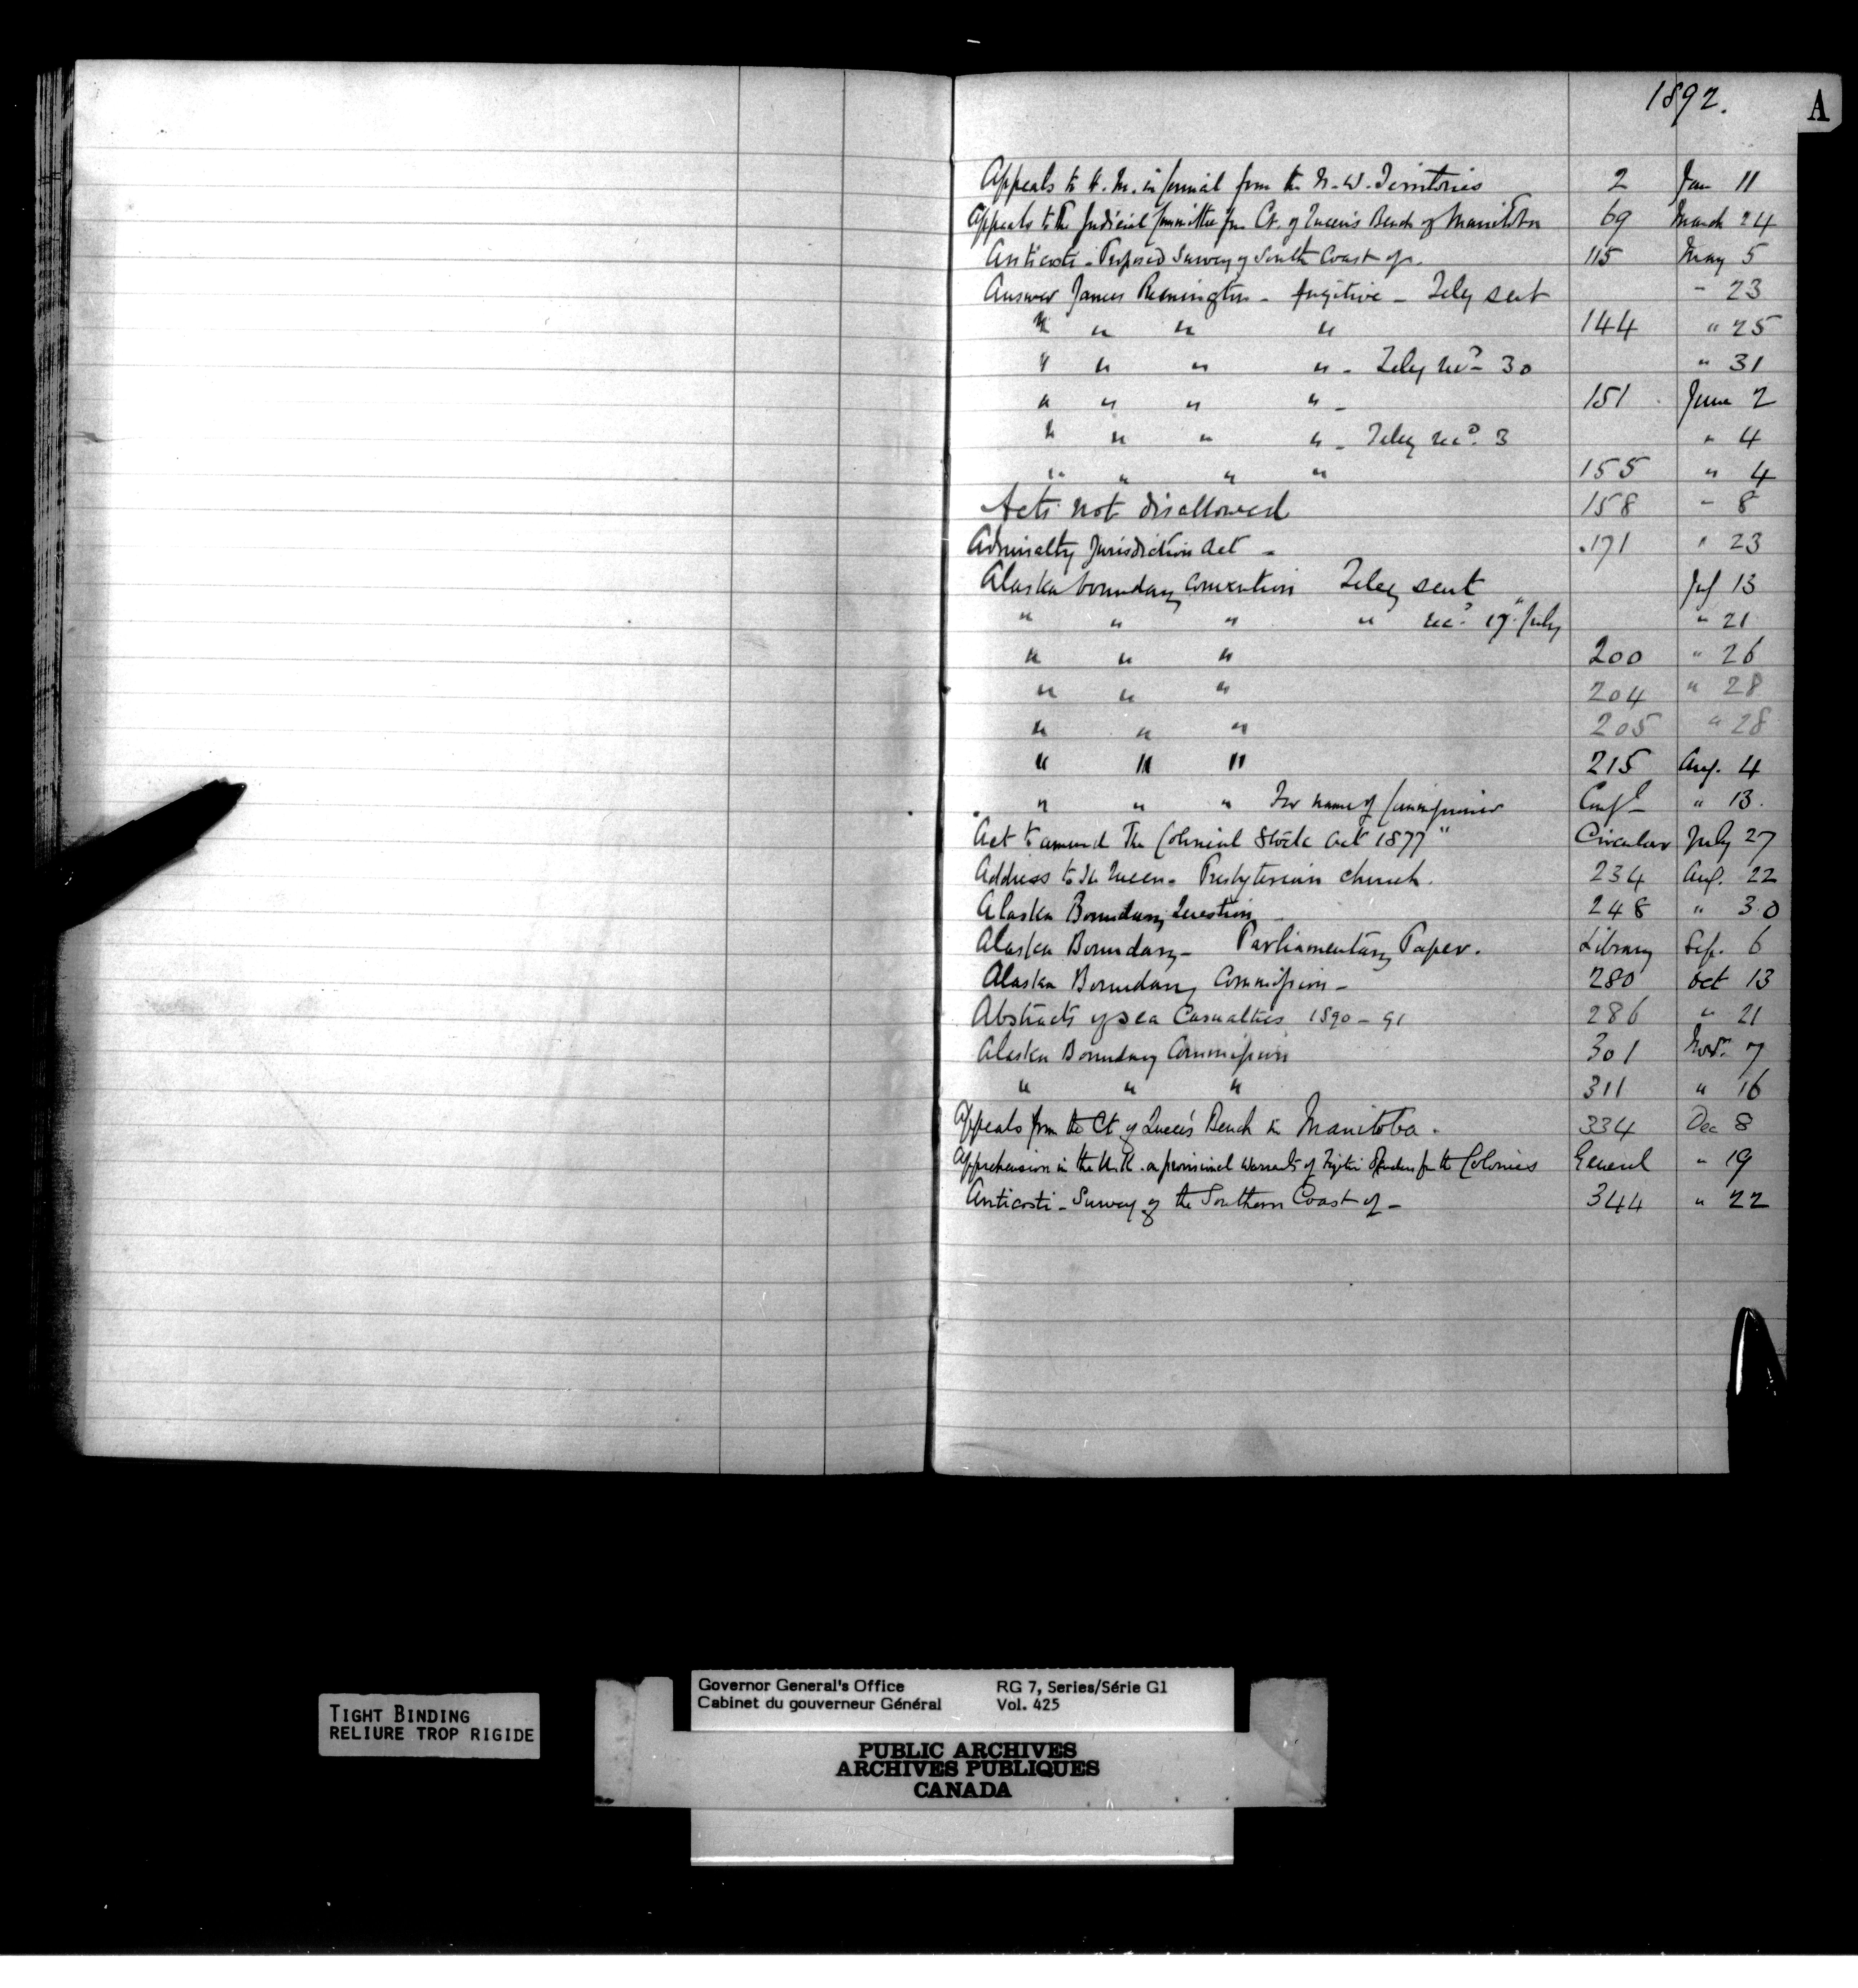 1892.
A
Appeals to H. M. in Council from the N. W. Territories 2 Jan 11
Appeals to the Judicial Committee from Ct. of Queen's Bench of Manitoba 69 March 24
Anticosti - Proposed Survey of South Coast of. 115 May 5
James Remington - fugitive - Teleg sent " 23
" " " " 144 " 25
" " " " - Teleg recd 30 " 31
" " " " - 151 June 2
" " " " - Teleg recd. 3 " 4
" " " " 155 " 4
Acts not disallowed 158 " 8
Admiralty Jurisdiction Act - 171 " 23
Alaska boundary Convention Teleg sent Jy 13
" " " " recd. 19th July " 21
" " " 200 " 26
" " " 204 " 28
" " " 205 " 28
" " " 215 Aug. 4
" " " For name of Commissioner Confl " 13.
Act to amend The Colonial Stock Act 1877" Circular July 27
Address to the Queen - Presbyterian church. 234 Aug. 22
Alaska Boundary Question 248 " 30
Alaska Boundary - Parliamentary Paper. Library Sep. 6
Alaska Boundary Commission - 280 Oct 13
Abstracts of Sea Casualties 1890 - 91 286 " 21
Alaska Boundary Commission 301 Novr. 7
" " " 311 " 16
Appeals from the Ct. of Queen's Bench in Manitoba. 334 Dec 8
Apprehension in the U.K. on provisional Warrants of Fugitive Offenders from the Colonies General " 19
Anticosti - Survey of the Southern Coast of - 344 " 22
TIGHT BINDING
RELIURE TROP RIGIDE
Governor General's Office RG 7, Series/Série G1
Cabinet du gouverneur Général Vol. 425
PUBLIC ARCHIVES
ARCHIVES PUBLIQUES
CANADA